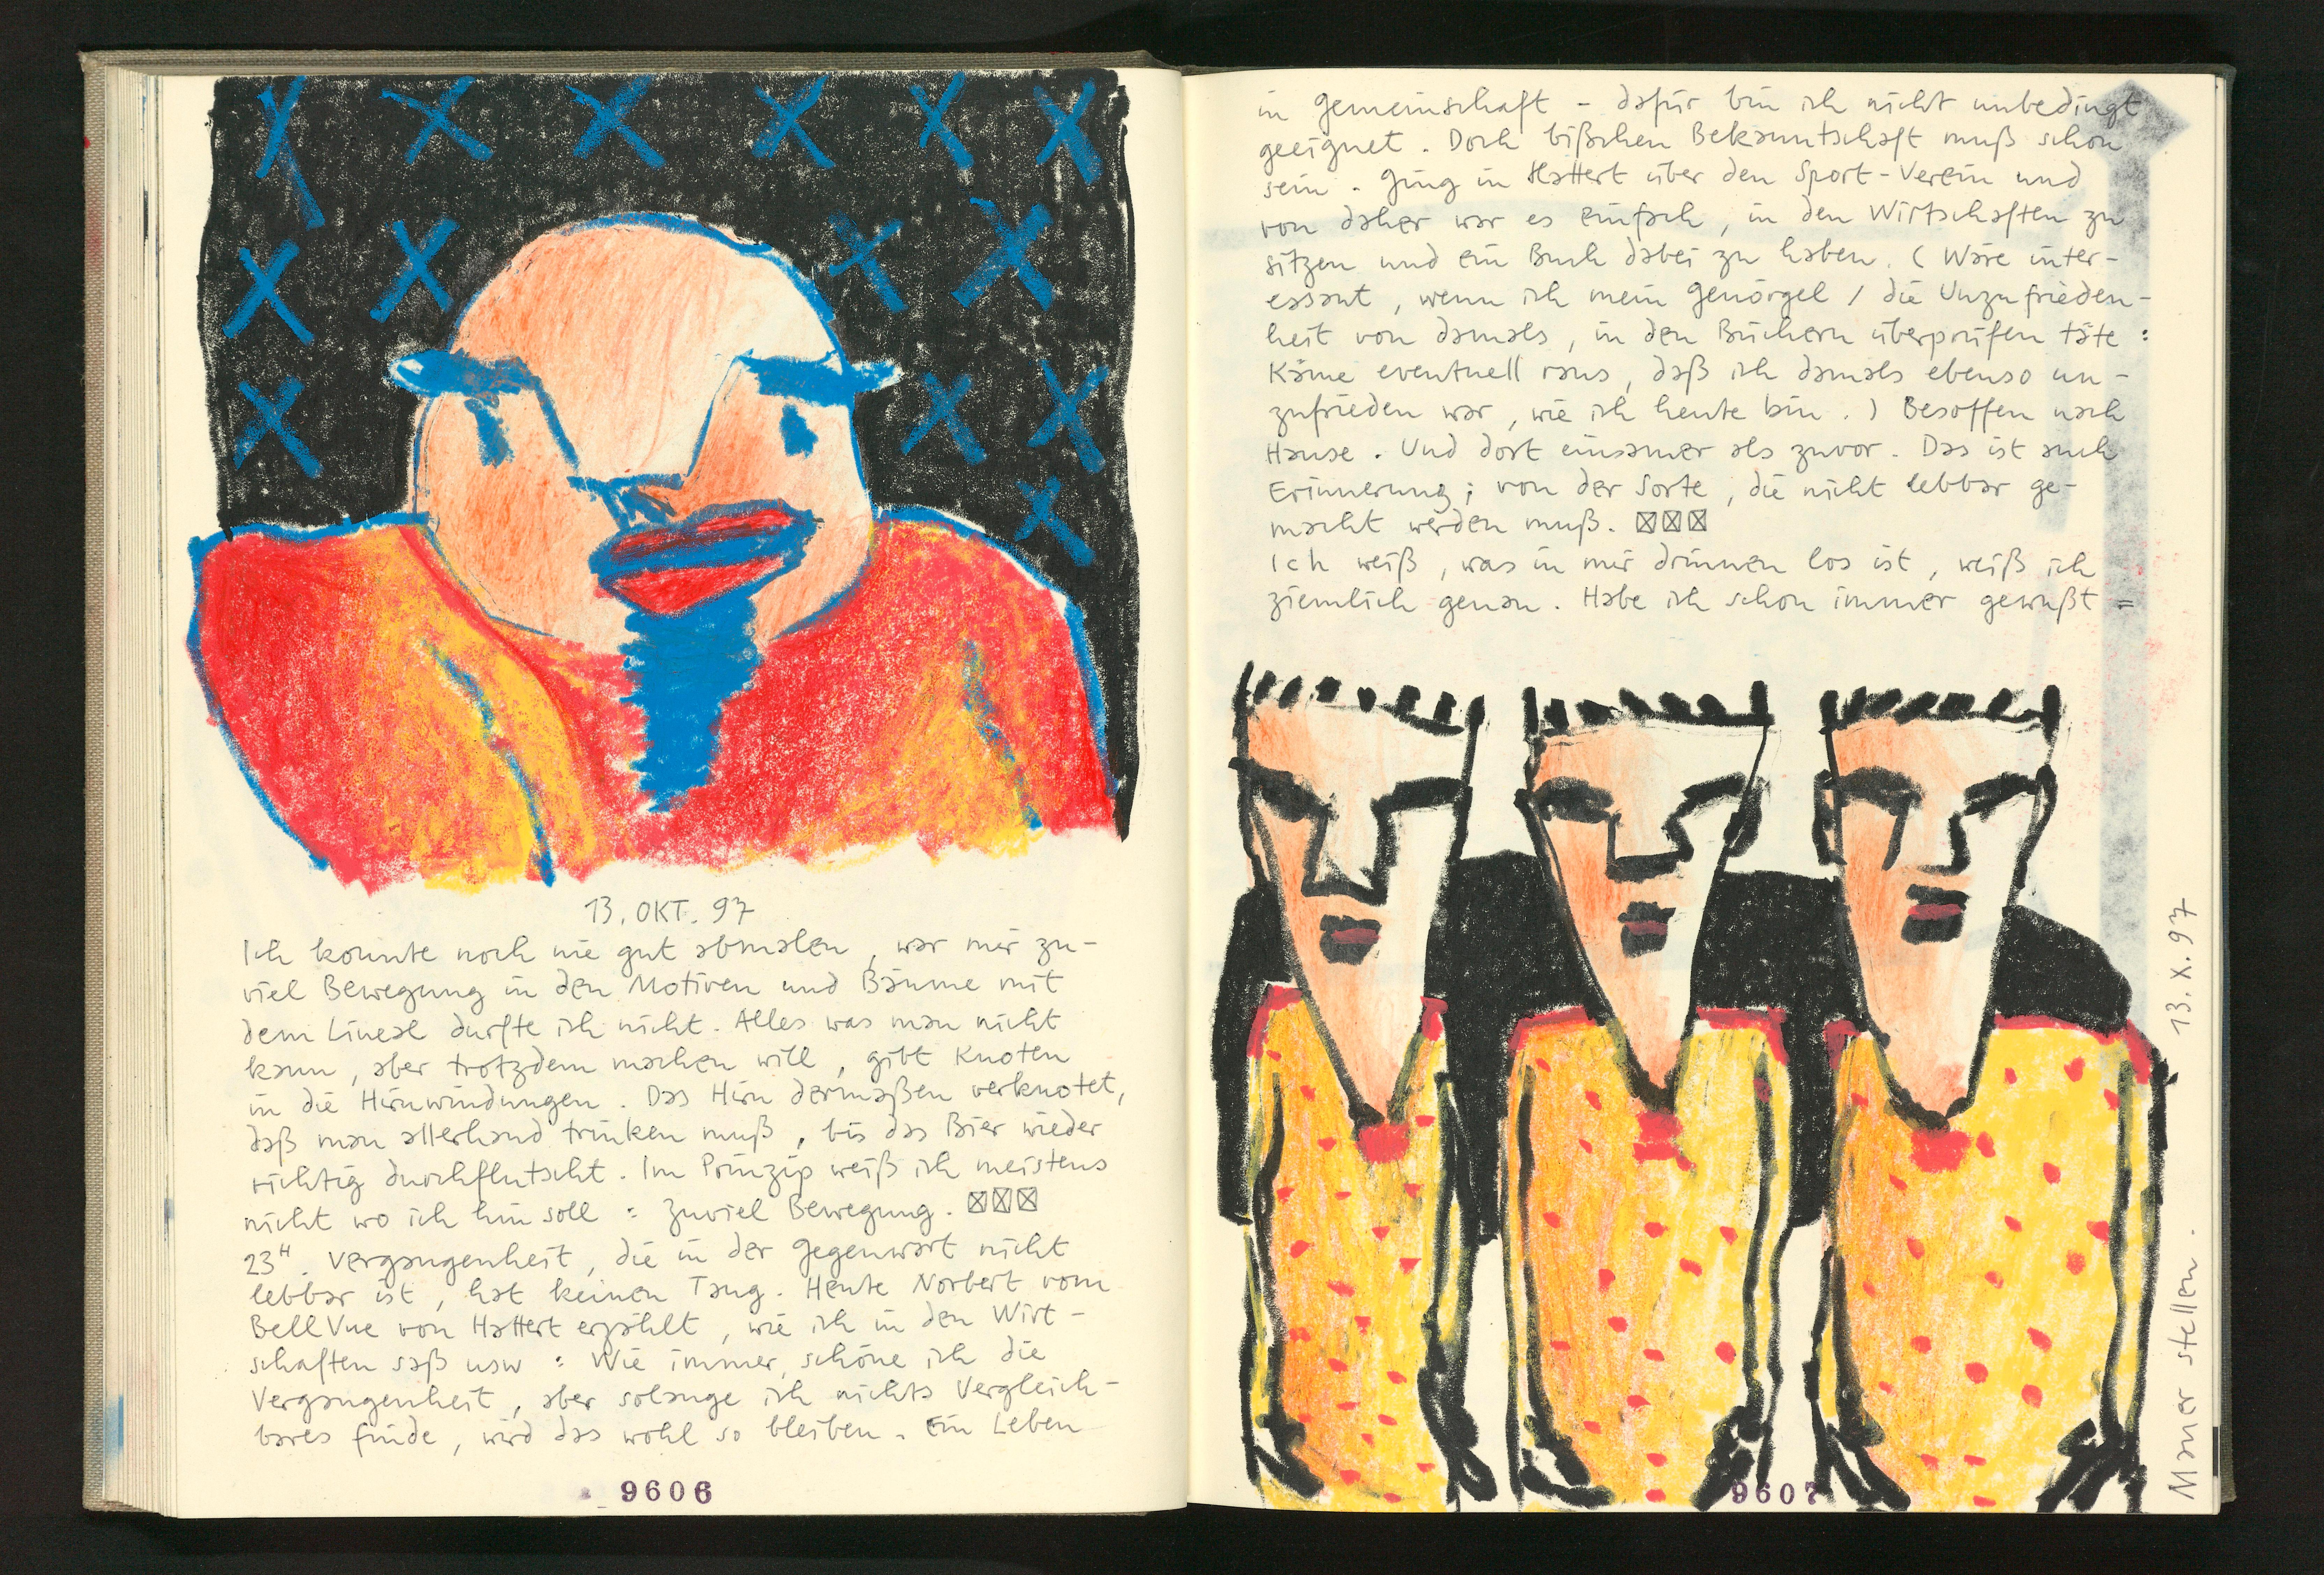 13. OKT. 97
Ich konnte noch nie gut abmalen, war mir zu-
viel Bewegung in den Motiven und Bäume mit
dem Lineal durfte ich nicht. Alles was man nicht
kann, aber trotzdem machen will, gibt Knoten
in die Hirnwindungen. Das Hirn dermaßen verknotet,
daß man allerhand trinken muß, bis das Bier wieder
richtig durchflutscht. Im Prinzip weiß ich meistens
nicht wo ich hin soll : zuviel Bewegung. ☒☒☒
23ᴴ. Vergangenheit, die in der Gegenwart nicht
lebbar ist, hat keinen Tang. Heute Norbert vom
BellVue von Hattert erzählt, wie ich in den Wirt-
schaften saß usw : Wie immer, schöne ich die
Vergangenheit, aber solange ich nichts Vergleich-
bares finde, wird das wohl so bleiben. Ein Leben
9606
in Gemeinschaft - dafür bin ich nicht unbedingt
geeignet. Doch bißchen Bekanntschaft muß schon
sein. Ging in Hattert über den Sport-Verein und
von daher war es einfach, in den Wirtschaften zu
sitzen und ein Buch dabei zu haben. (Wäre inter-
essant, wenn ich mein Genörgel / die Unzufrieden-
heit von damals, in den Büchern überprüfen täte :
Käme eventuell raus, daß ich damals ebenso un-
zufrieden war, wie ich heute bin.) Besoffen nach
Hause. Und dort einsamer als zuvor. Das ist auch
Erinnerung; von der Sorte, die nicht lebbar ge-
macht werden muß. ☒☒☒
Ich weiß, was in mir drinnen los ist, weiß ich
ziemlich genau. Habe ich schon immer gewußt =
9607
Maner stellen. 13.X.97